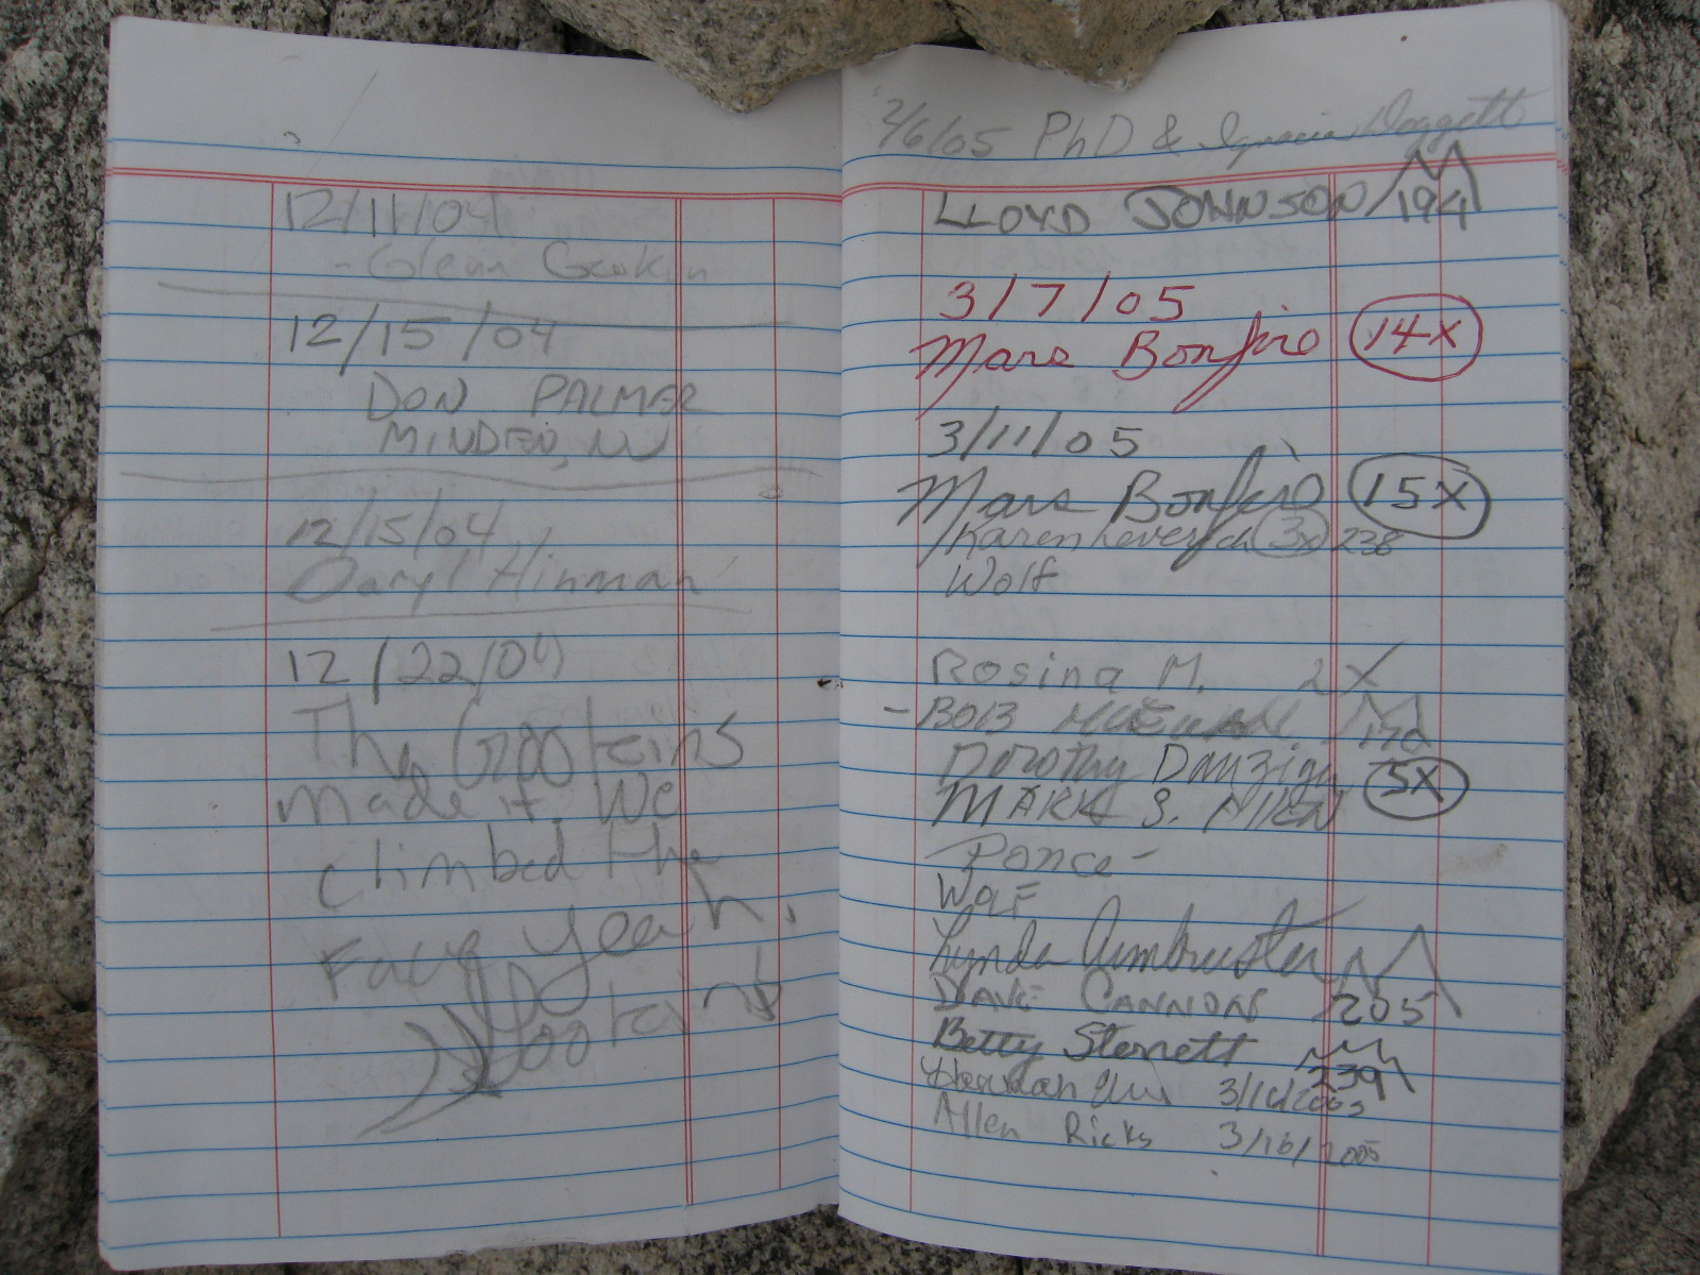 12/11/04
- Glenn
12/15/04
DON PALMER
MINDEN, NV
12/15/04
Daryl Hinman
12/22/04
The Grooteins
made it. We
climbed the
Face yeah.
2/6/05 PhD & Ignacia Doggett
LLOYD JOHNSON 194
3/7/05
Mars Bonfire 14x
3/11/05
Mars Bonfire 15x
Karen Leverich 3x 238
Wolf
Rosina M. 2X
- BOB
Dorothy Danziger 5X
MARK S. AllEN
Ponce -
WOLF
Lynda Armbruster
DAVE CANNON 205
Betty Sterrett 239
3/16/2005
Allen Ricks 3/16/2005